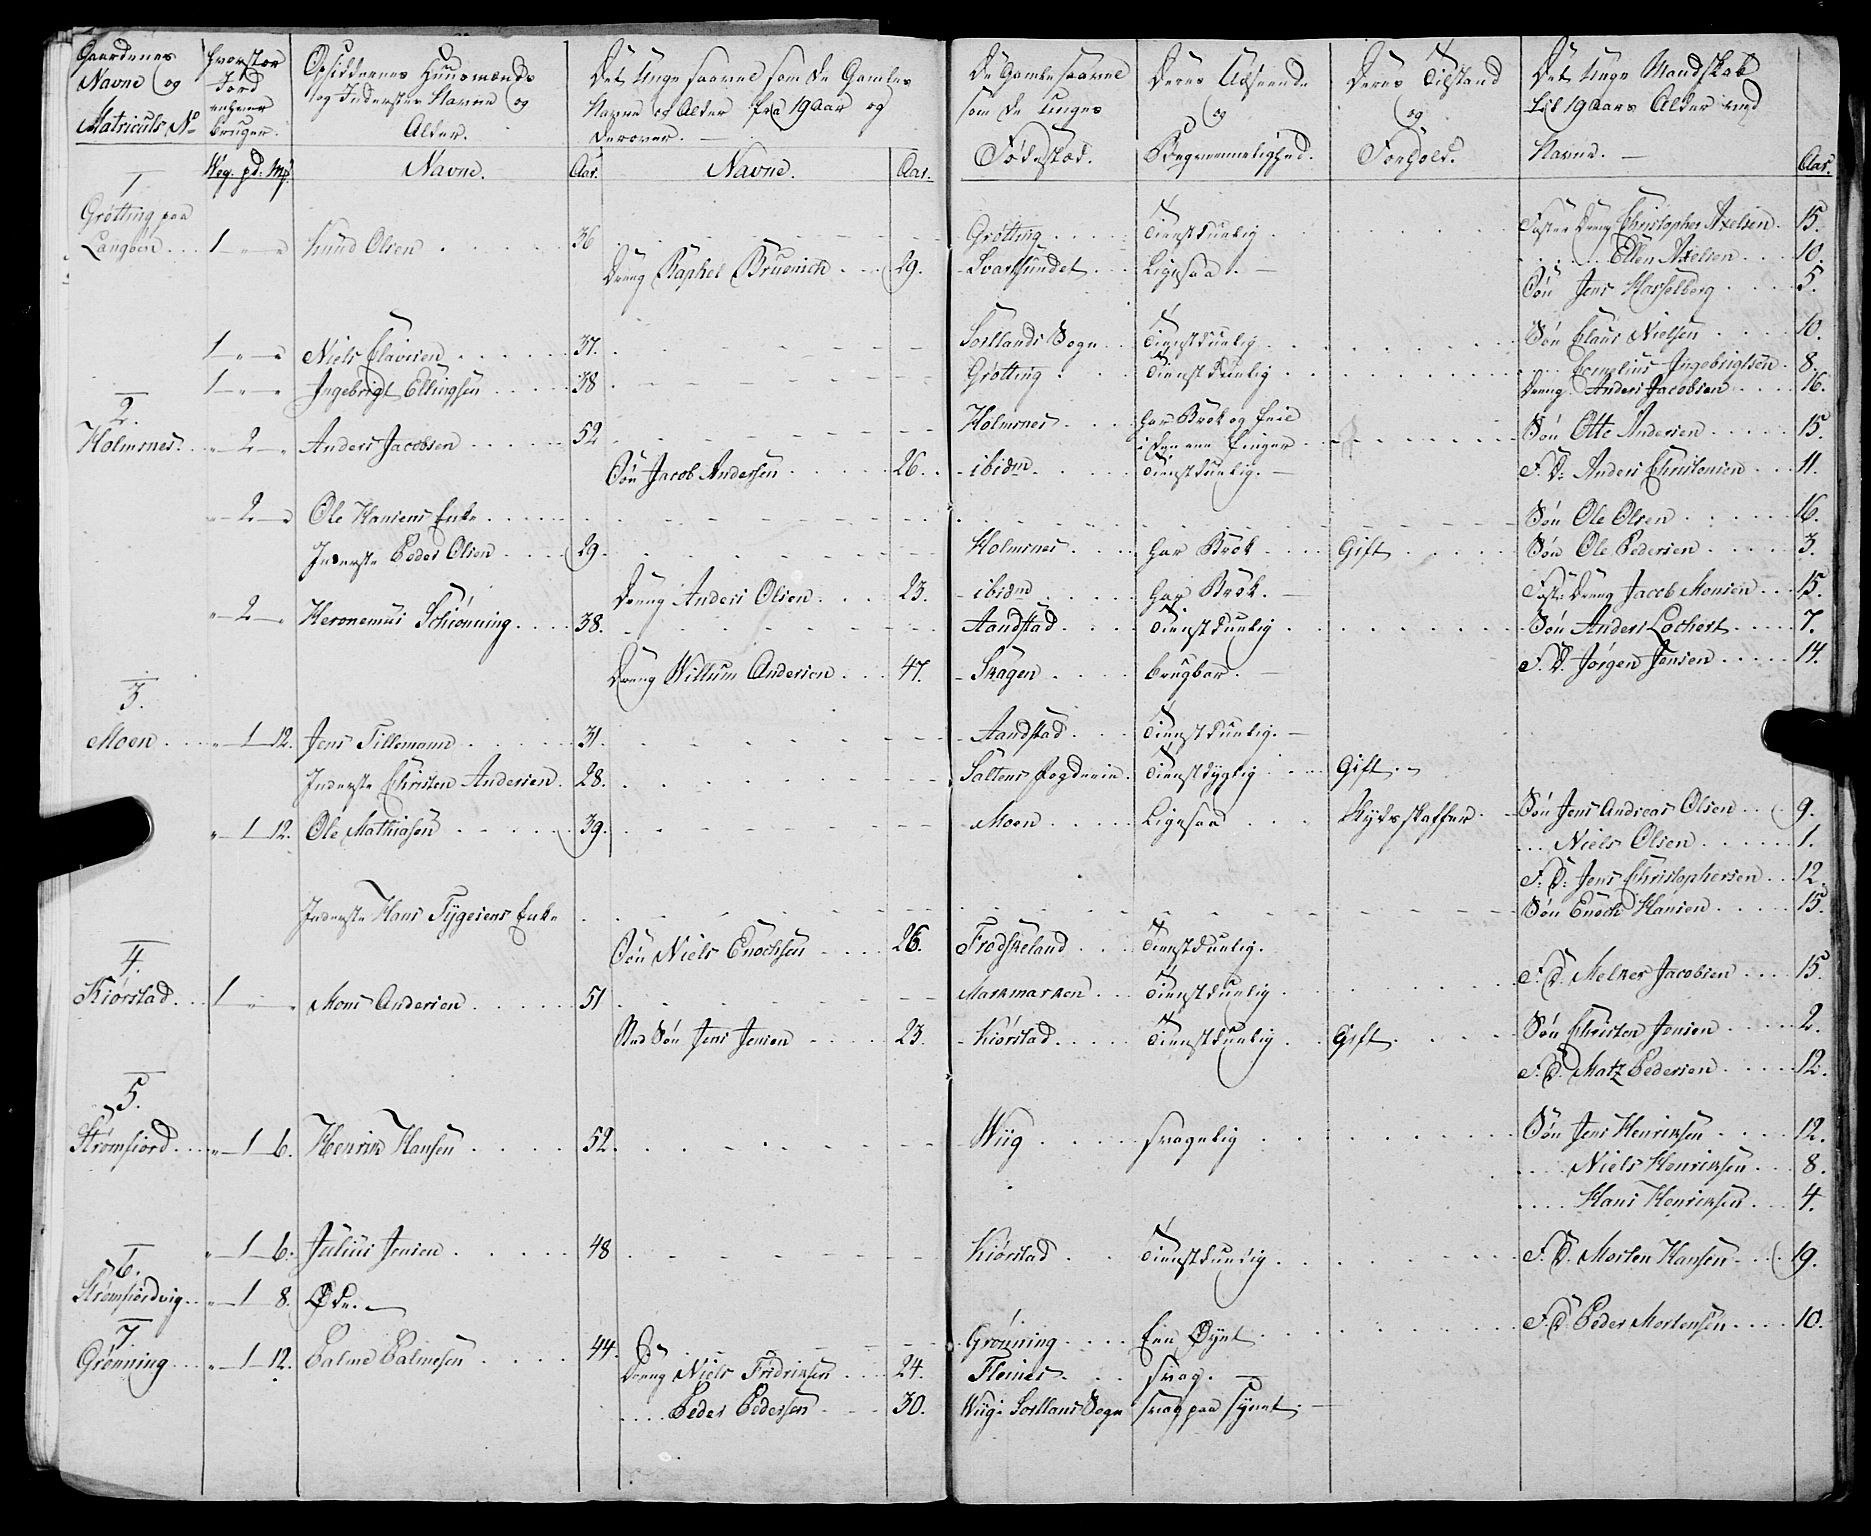 Gaardenes Navne og Matriculs No | hvorstor Jord enhver bruger. | Opsiddernes Huusmænds og Inderster Navne og Alder. | Det Unge saavel som de Gamles Navne og Alder fra 19 Aar og derover. | De Gamle saavel som de Unges Fødested. | Deres Udseende og Beqvemmelighed. | Deres Tilstand og Forhold. | Det Unge Mandskab til 19 Aars Alder ved Navne.
Wog. pd: Mk. | Navne. | Aar. | Navne. | Aar. | Aar.
1
Grøtting paa
Langøen 1 " " Knud Olsen 36 Grøtting Tienstduelig Foster Dreng Christopher Axelsen 15.
Dreng Raphel Bruenich 29. Svartsundet Ligesaa. Ellen Axelsen 10.
Søn Jens Hasselberg 5.
1 " " Niels Clausen 37. Sortlands Sogn Tienstduelig Søn Claus Nielsen 10.
1 " " Ingebrigt Ellingsen 38 Grøtting Tienstduelig Cornelius Ingebrigtsen 8.
Dreng Anders Jacobsen 16.
2.
Holmsnes. " 2 " Anders Jacobsen 52 Holmsnes har Brok og feil i den ene Finger Søn Otte Andersen 15.
Søn Jacob Andersen 26. ibidm Tienstduelig. F. D: Anders Christensen 11.
" 2 " Ole Hansens Enke Søn Ole Olsen 16.
Inderste Peder Olsen 29. Holmsnes har Brok Gift Søn Ole Pedersen 3.
Dreng Anders Olsen 23. ibidm har Brok. Fost: Dreng Jacob Monsen 15.
" 2 " Heronemus Schiønning 38. Aandstad Tienstduelig Søn Anders Lochert 7.
Dreng Willum Andersen 47. Skagen brugbar. F. D. Jørgen Jensen 14.
3.
Moen " 1 12. Jens Tillemann 31. Aandstad Tienstduelig.
Inderste Christen Andersen 28. Saltens Fogderie Tienstdygtig Gift.
" 1 12. Ole Mathiasen 39. Moen Ligesaa Skydsskaffer Søn Jens Andreas Olsen 9.
Niels Olsen 1.
F. D: Jens Christophersen 12.
Inderste Hans Tygesens Enke Søn Enoch Hansen 15.
Søn Niels Enochsen 26. Frodskeland Tienstduelig.
4.
Kiørstad 1 " " Mons Andersen 51 Markmarken Tienstduelig F. D. Melker Jacobsen 15.
Stedsøn Jens Jensen 23. Kiørstad Tienstduelig Gift Søn Christen Jensen 2.
F. D. Matz Pedersen 12.
5.
Strømfiord " 1 6. Henrik Hansen 52. Wiig svagelig Søn Jens Henriksen 12.
Niels Henriksen 8.
Hans Henriksen 4.
" 1 6. Julius Jensen 48 Kiørstad Tienstduelig F. D. Morten Hansen 19.
6.
Strømfiordvig " 1 8. Øde.
7.
Grønning " 1 12. Palme Palmesen 44. Grønning Een Øyet F. D. Peder Mortensen 10.
Dreng Niels Fridriksen 24. Fleines svag.
Peder Pedersen 30. Wiig i Sortlans Sogn svag paa Synet.